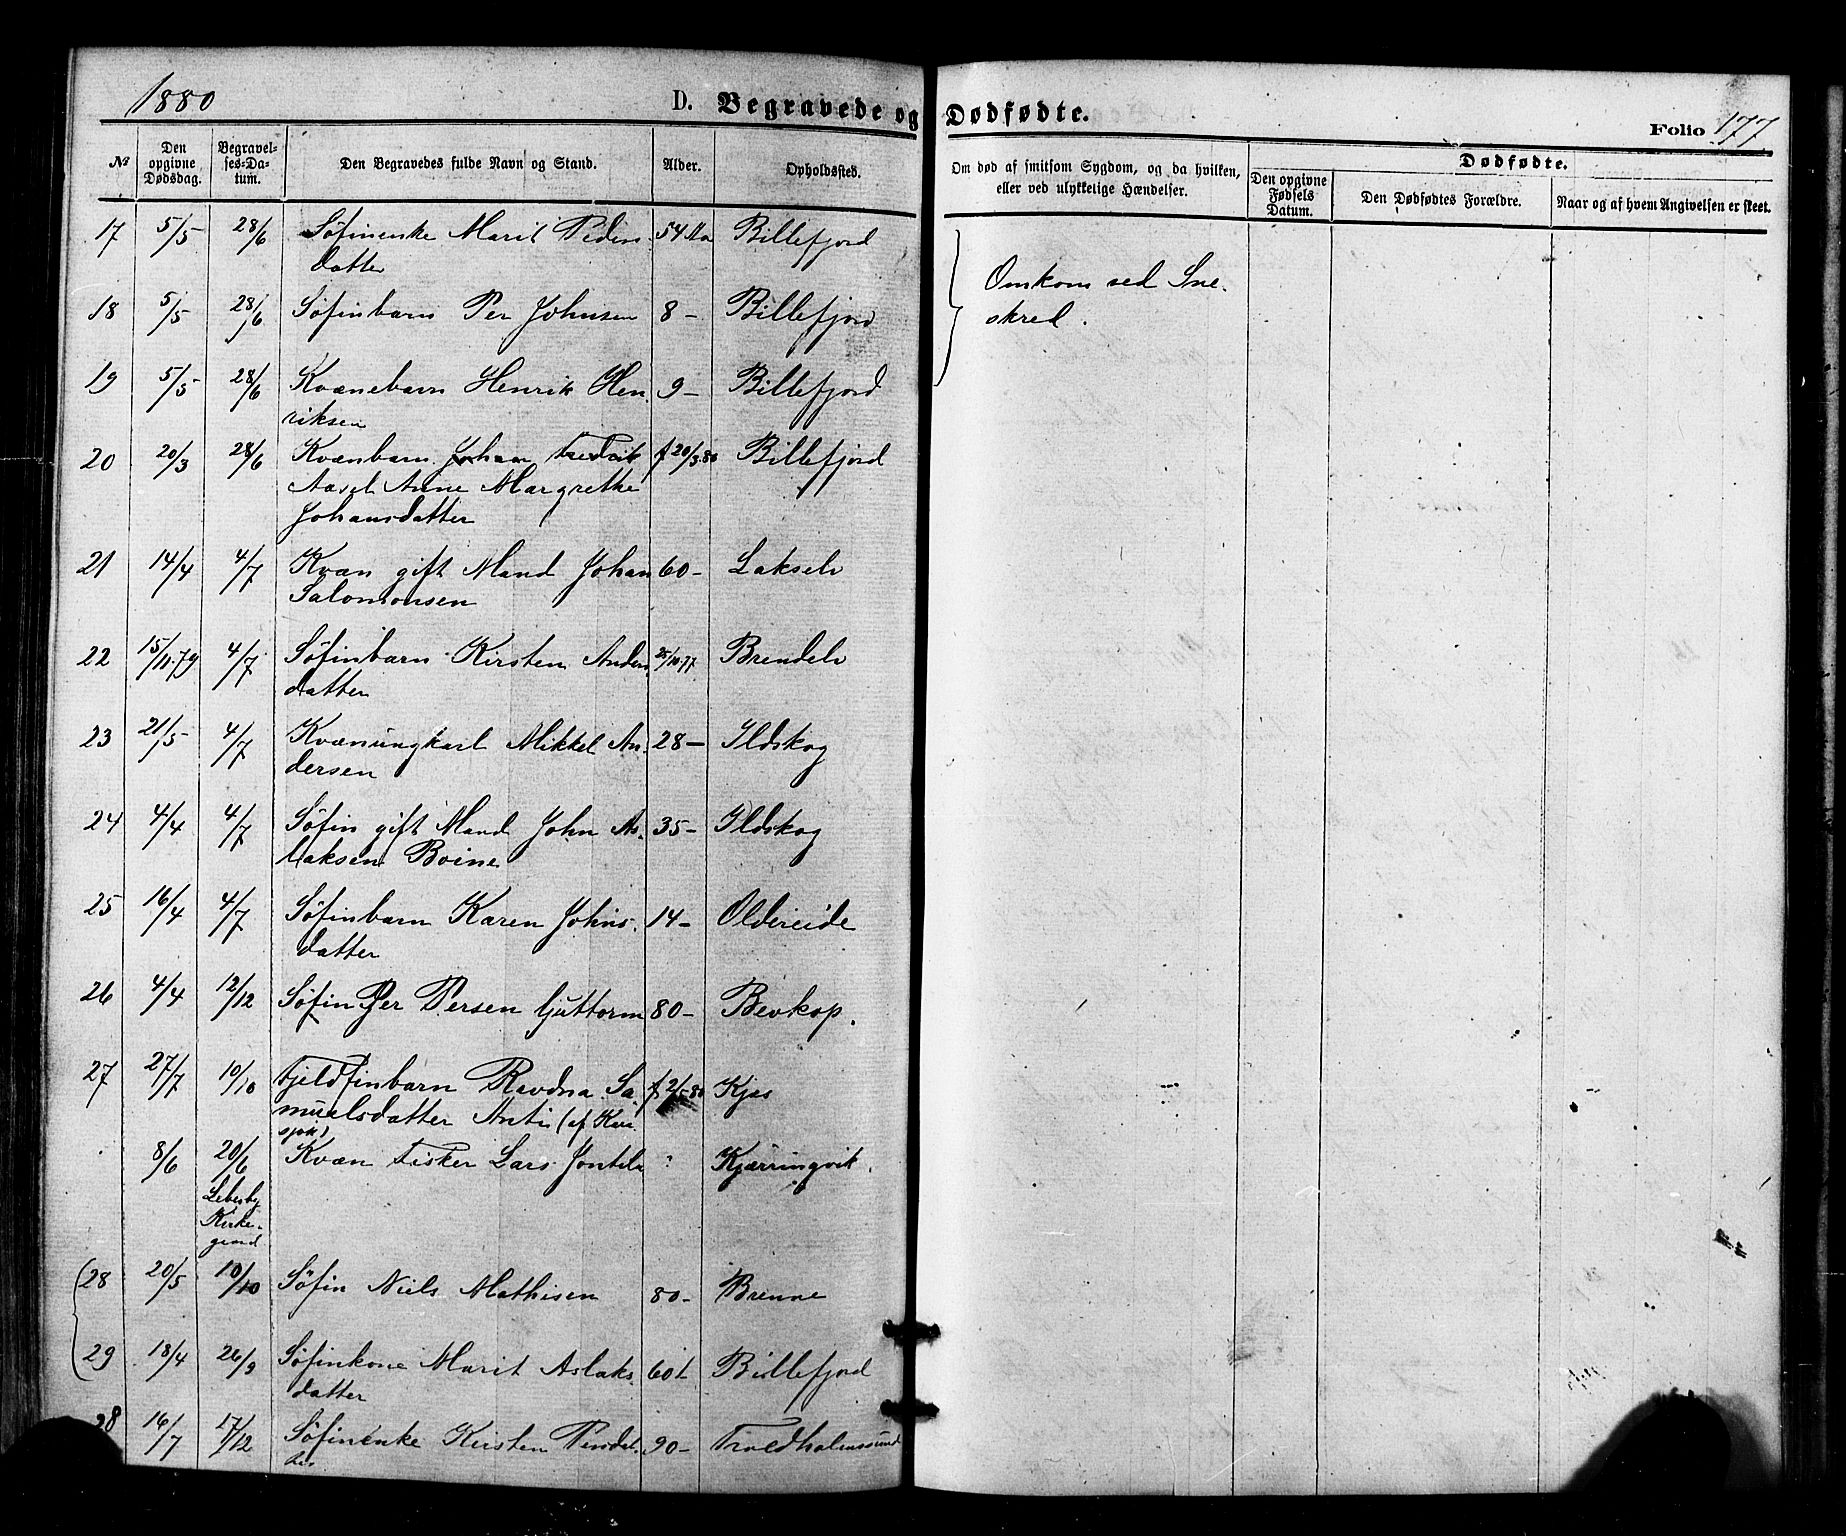 1880
D. Begravede og Dødfødte.
Folio 177
№
Den opgivne Dødsdag.
Begravelses-Datum.
Den Begravedes fulde Navn og Stand.
Alder.
Opholdssted.
Om død af smitsom Sygdom, og da hvilken, eller ved ulykkelige Hændelser.
Dødfødte.
Den opgivne Fødsels Datum.
Den Dødfødtes Forældre.
Naar og af hvem Angivelsen er skeet.
17 5/5 28/6 Søfinenke Marit Peders- 54 Aar Billefjord
datter
Omkom ved Sne-
skred.
18 5/5 28/6 Søfinbarn Per Johnsen 8 - Billefjord
19 5/5 28/6 Kvænebarn Henrik Hen- 9 - Billefjord
riksen
20 20/3 28/6 Kvænbarn Johan Fredrik f 20/3.80 Billefjord
Anne Margrethe
Johansdatter
21 14/4 4/7 Kvæn gift Mand Johan 60 - Lakselv
Salomonsen
22 15/11.79 4/7 Søfinbarn Kirsten Anders- 25/10.77 Brendelv
datter
23 21/5 4/7 Kvænungkarl Mikkel An- 28 - Ildskog
dersen
24 4/4 4/7 Søfin gift Mand John As- 35 - Ildskog
laksen Boine
25 16/4 4/7 Søfinbarn Karen Johns- 14 - Oldereide
datter
26 4/4 12/12 Søfin Per Persen Guttorm 80 - Bevkop.
27 27/7 10/10 Fjeldfinbarn Ravdna Sa- f. 2/5-80 Kjæs
muelsdatter Anti (af Kara-
sjok)
8/6 20/6 Kvæn Fisker Lars ? Kjærringvik.
Lebesby
Kirke-
gaard
28 20/5 10/10 Søfin Niels Mathisen 80 - Brenne
29 18/4 26/9 Søfinkone Marit Aslaks- 60 Billefjord
datter
28 16/7 17/12 Søfinenke Kirsten 90 - Troldholmssund